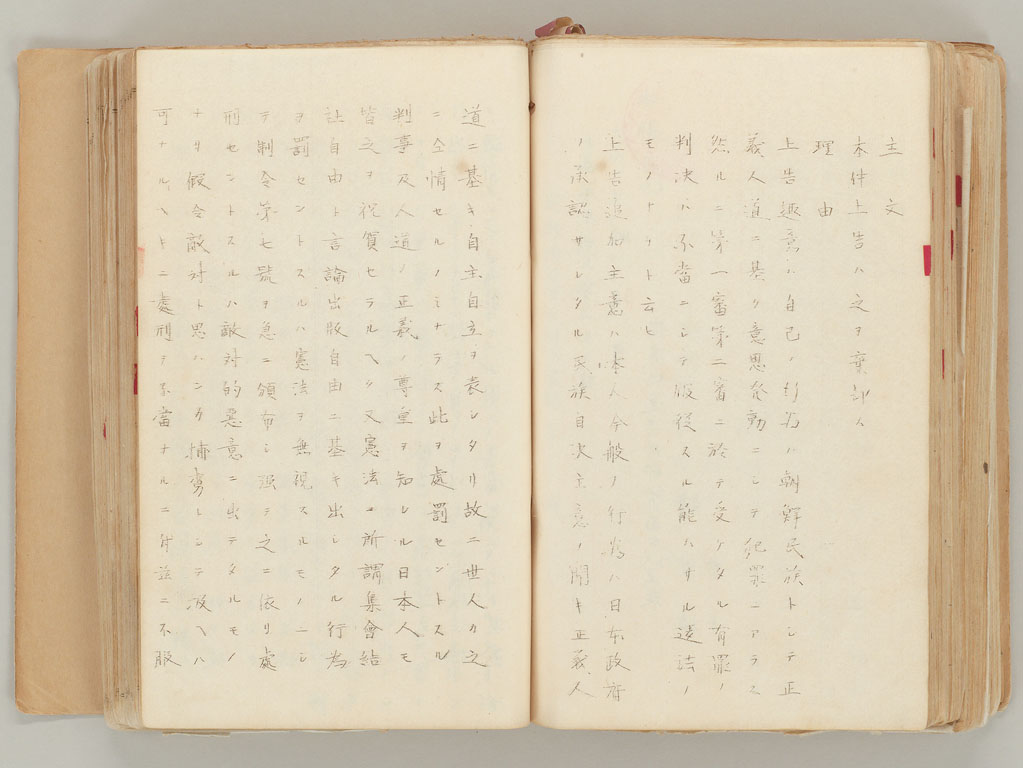 主文
本件上告ハ之ヲ棄却ス
理由
上告趣意ハ自己ノ行為ハ朝鮮民族トシテ正
義人道ニ基ク意思発動ニシテ犯罪ニアラス
然ルニ第一審第二審ニ於テ受ケタル有罪ノ
判决ハ不當ニシテ服従スル能ハサル違法ノ
モノナリト云ヒ
上告追加主意ハ本人今般ノ行為ハ日本政府
ノ承認サレタル民族自决主意ノ聞キ正義人
道ニ基キ自主自立ヲ表シタリ故ニ世人ク之
ニ仝情セルノミナラス此ヲ處罰セントスル
判事及人道ノ正義ノ尊重ヲ知レル日本人モ
皆之ヲ祝賀セラルヘク又憲法ニ所謂集會結
社自由ト言論出版自由ニ基キ出シタル行為
ヲ罰セントスルハ憲法ヲ無視スルモノニシ
テ制令第七號ヲ急ニ頒布シ強テ之ニ依リ處
刑セントスルハ敵対的惡意ニ出テタルモノ
ナリ假令敵対ト思ハンカ捕虜トシテ扱ヘハ
可ナルヘキニ處刑ヲ不當ナルニ付玆ニ不服